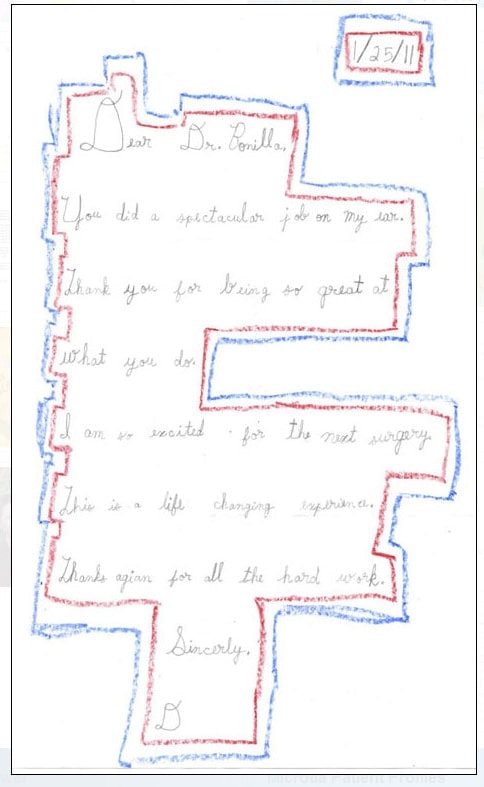 1/25/11
Dear Dr. Bonilla,
You did a spectacular job on my ear.
Thank you for being so great at
what you do.
I am so excited for the next surgery.
This is a life changing experience.
Thanks agian for all the hard work.
Sincerly,
D
Microtia Patient Profiles